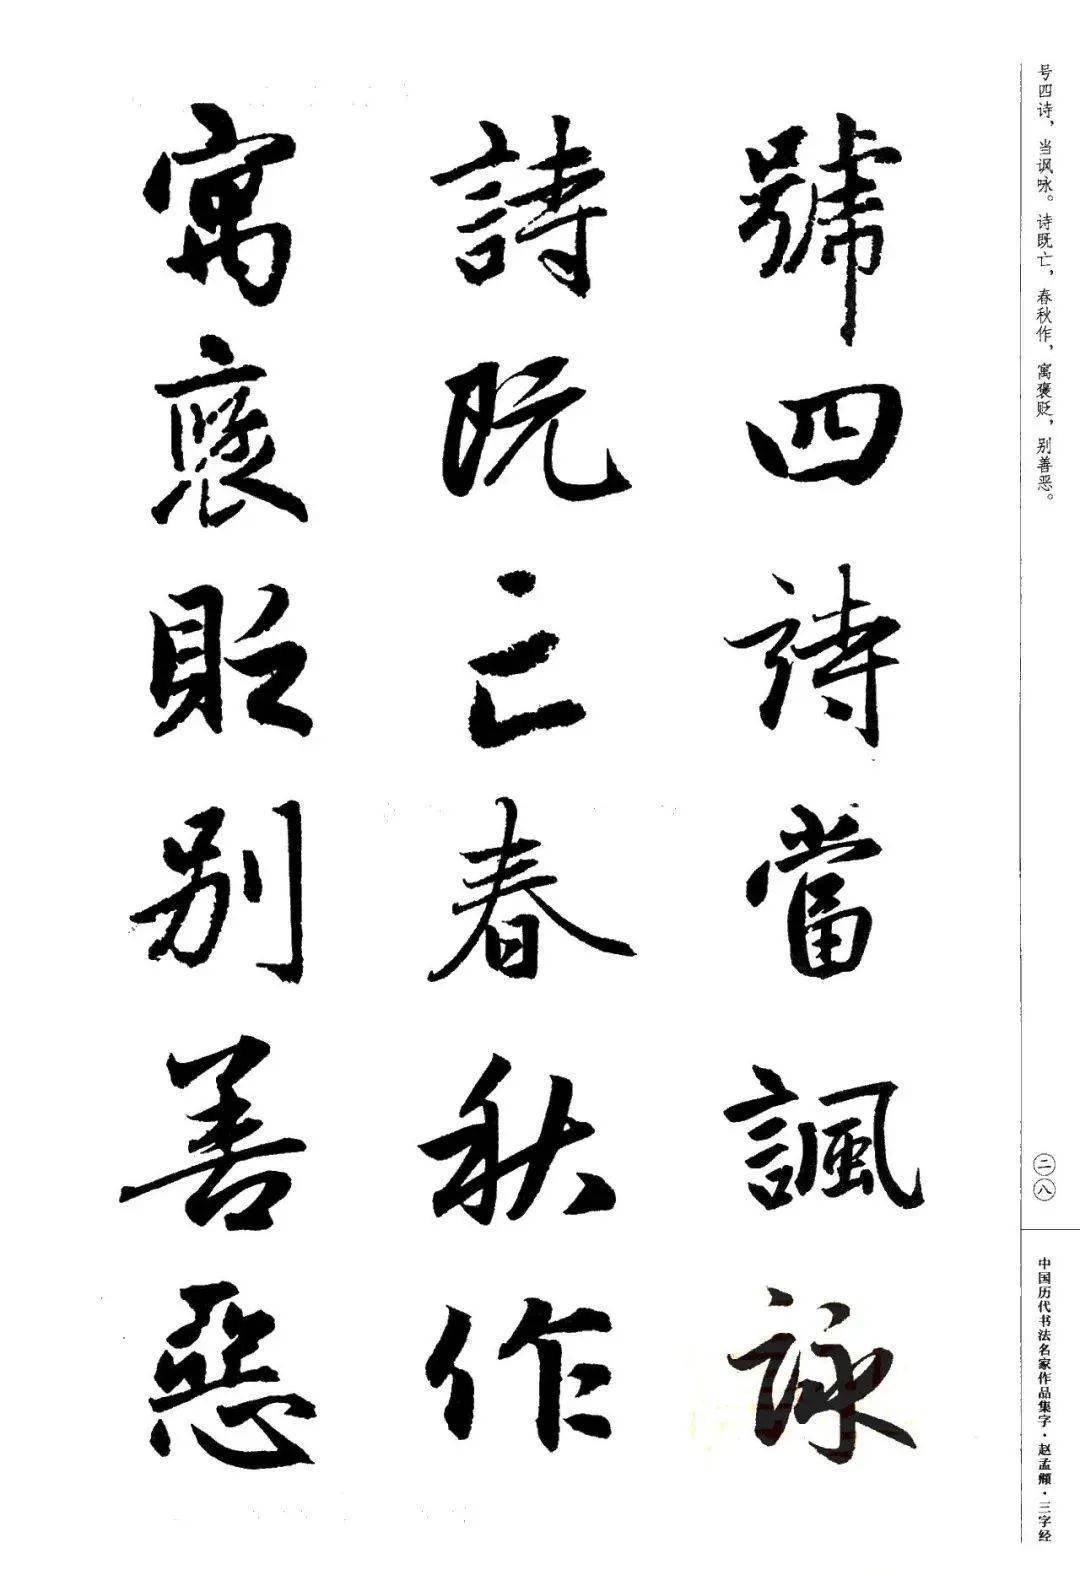 号四诗，当讽咏。诗既亡，春秋作，寓褒贬，别善恶。
二八
中国历代书法名家作品集字·赵孟頫·三字经
號四詩當諷詠
詩既亡春秋作
寓褒貶别善惡